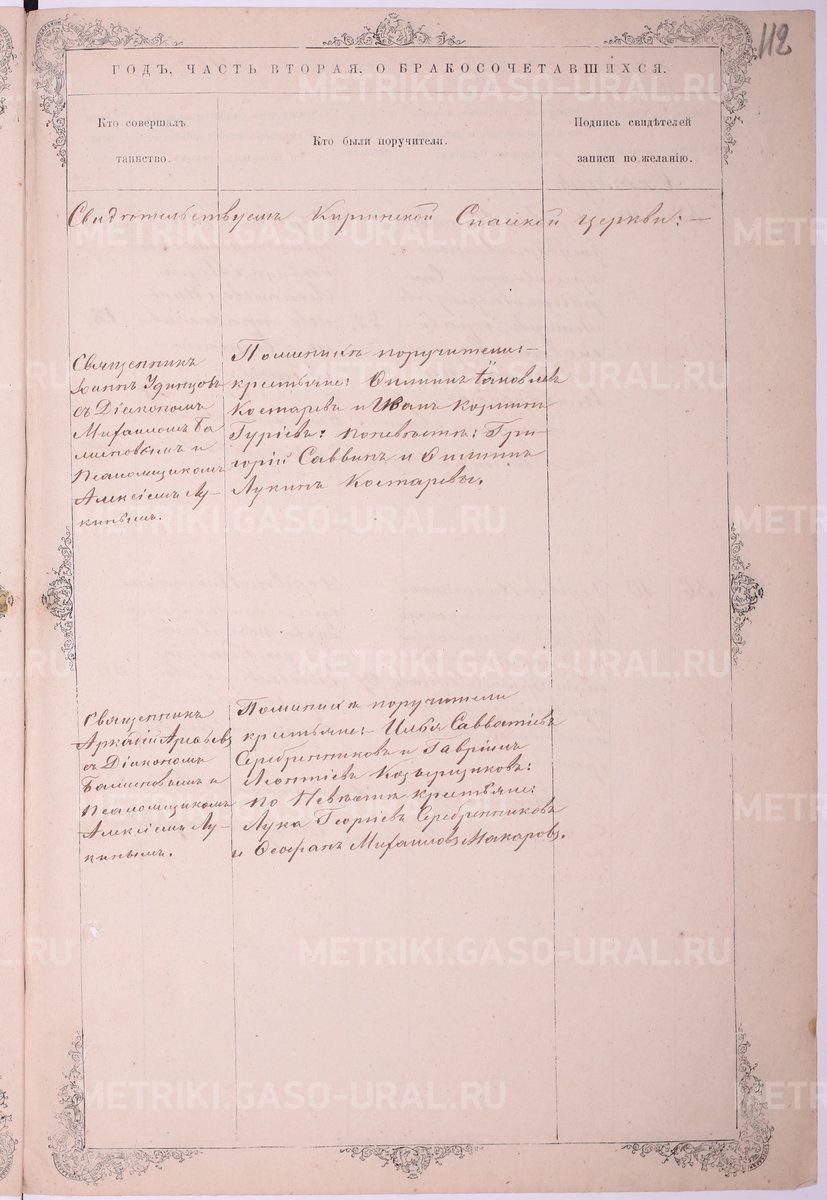 112
ГОДЪ, ЧАСТЬ ВТОРАЯ, О БРАКОСОЧЕТАВШИХСЯ.
Кто совершалъ
таинство.
Кто были поручители.
Подпись свидѣтелей
записи по желанію.
Свидѣтельствуемъ Киргинской Спасской церкви: —
Священникъ
Іоаннъ Удинцовъ
съ Діакономъ
Михаиломъ Ба
линовымъ и
Псаломщикомъ
Алексіемъ Лу-
кинымъ.
По женихѣ поручители: —
крестьяне: Филиппъ Яковлевъ
Костаревъ и Иванъ
Гуріевъ: по невѣстѣ: Гри-
горій Саввинъ и Филиппъ
Лукинъ Костаревы.
Священникъ
Аркадій
съ Діакономъ
Балиновымъ и
Псаломщикомъ
Алексіемъ Лу-
кинымъ.
По женихѣ поручители
крестьяне: — Илья Савватіевъ
Серебренниковъ и Гавріилъ
Леонтіевъ
по Невѣстѣ крестьяне:
Лука Георгіевъ Серебренниковъ
и Феофанъ Михаиловъ Макаровъ.
METRIKI.GASO-URAL.RU